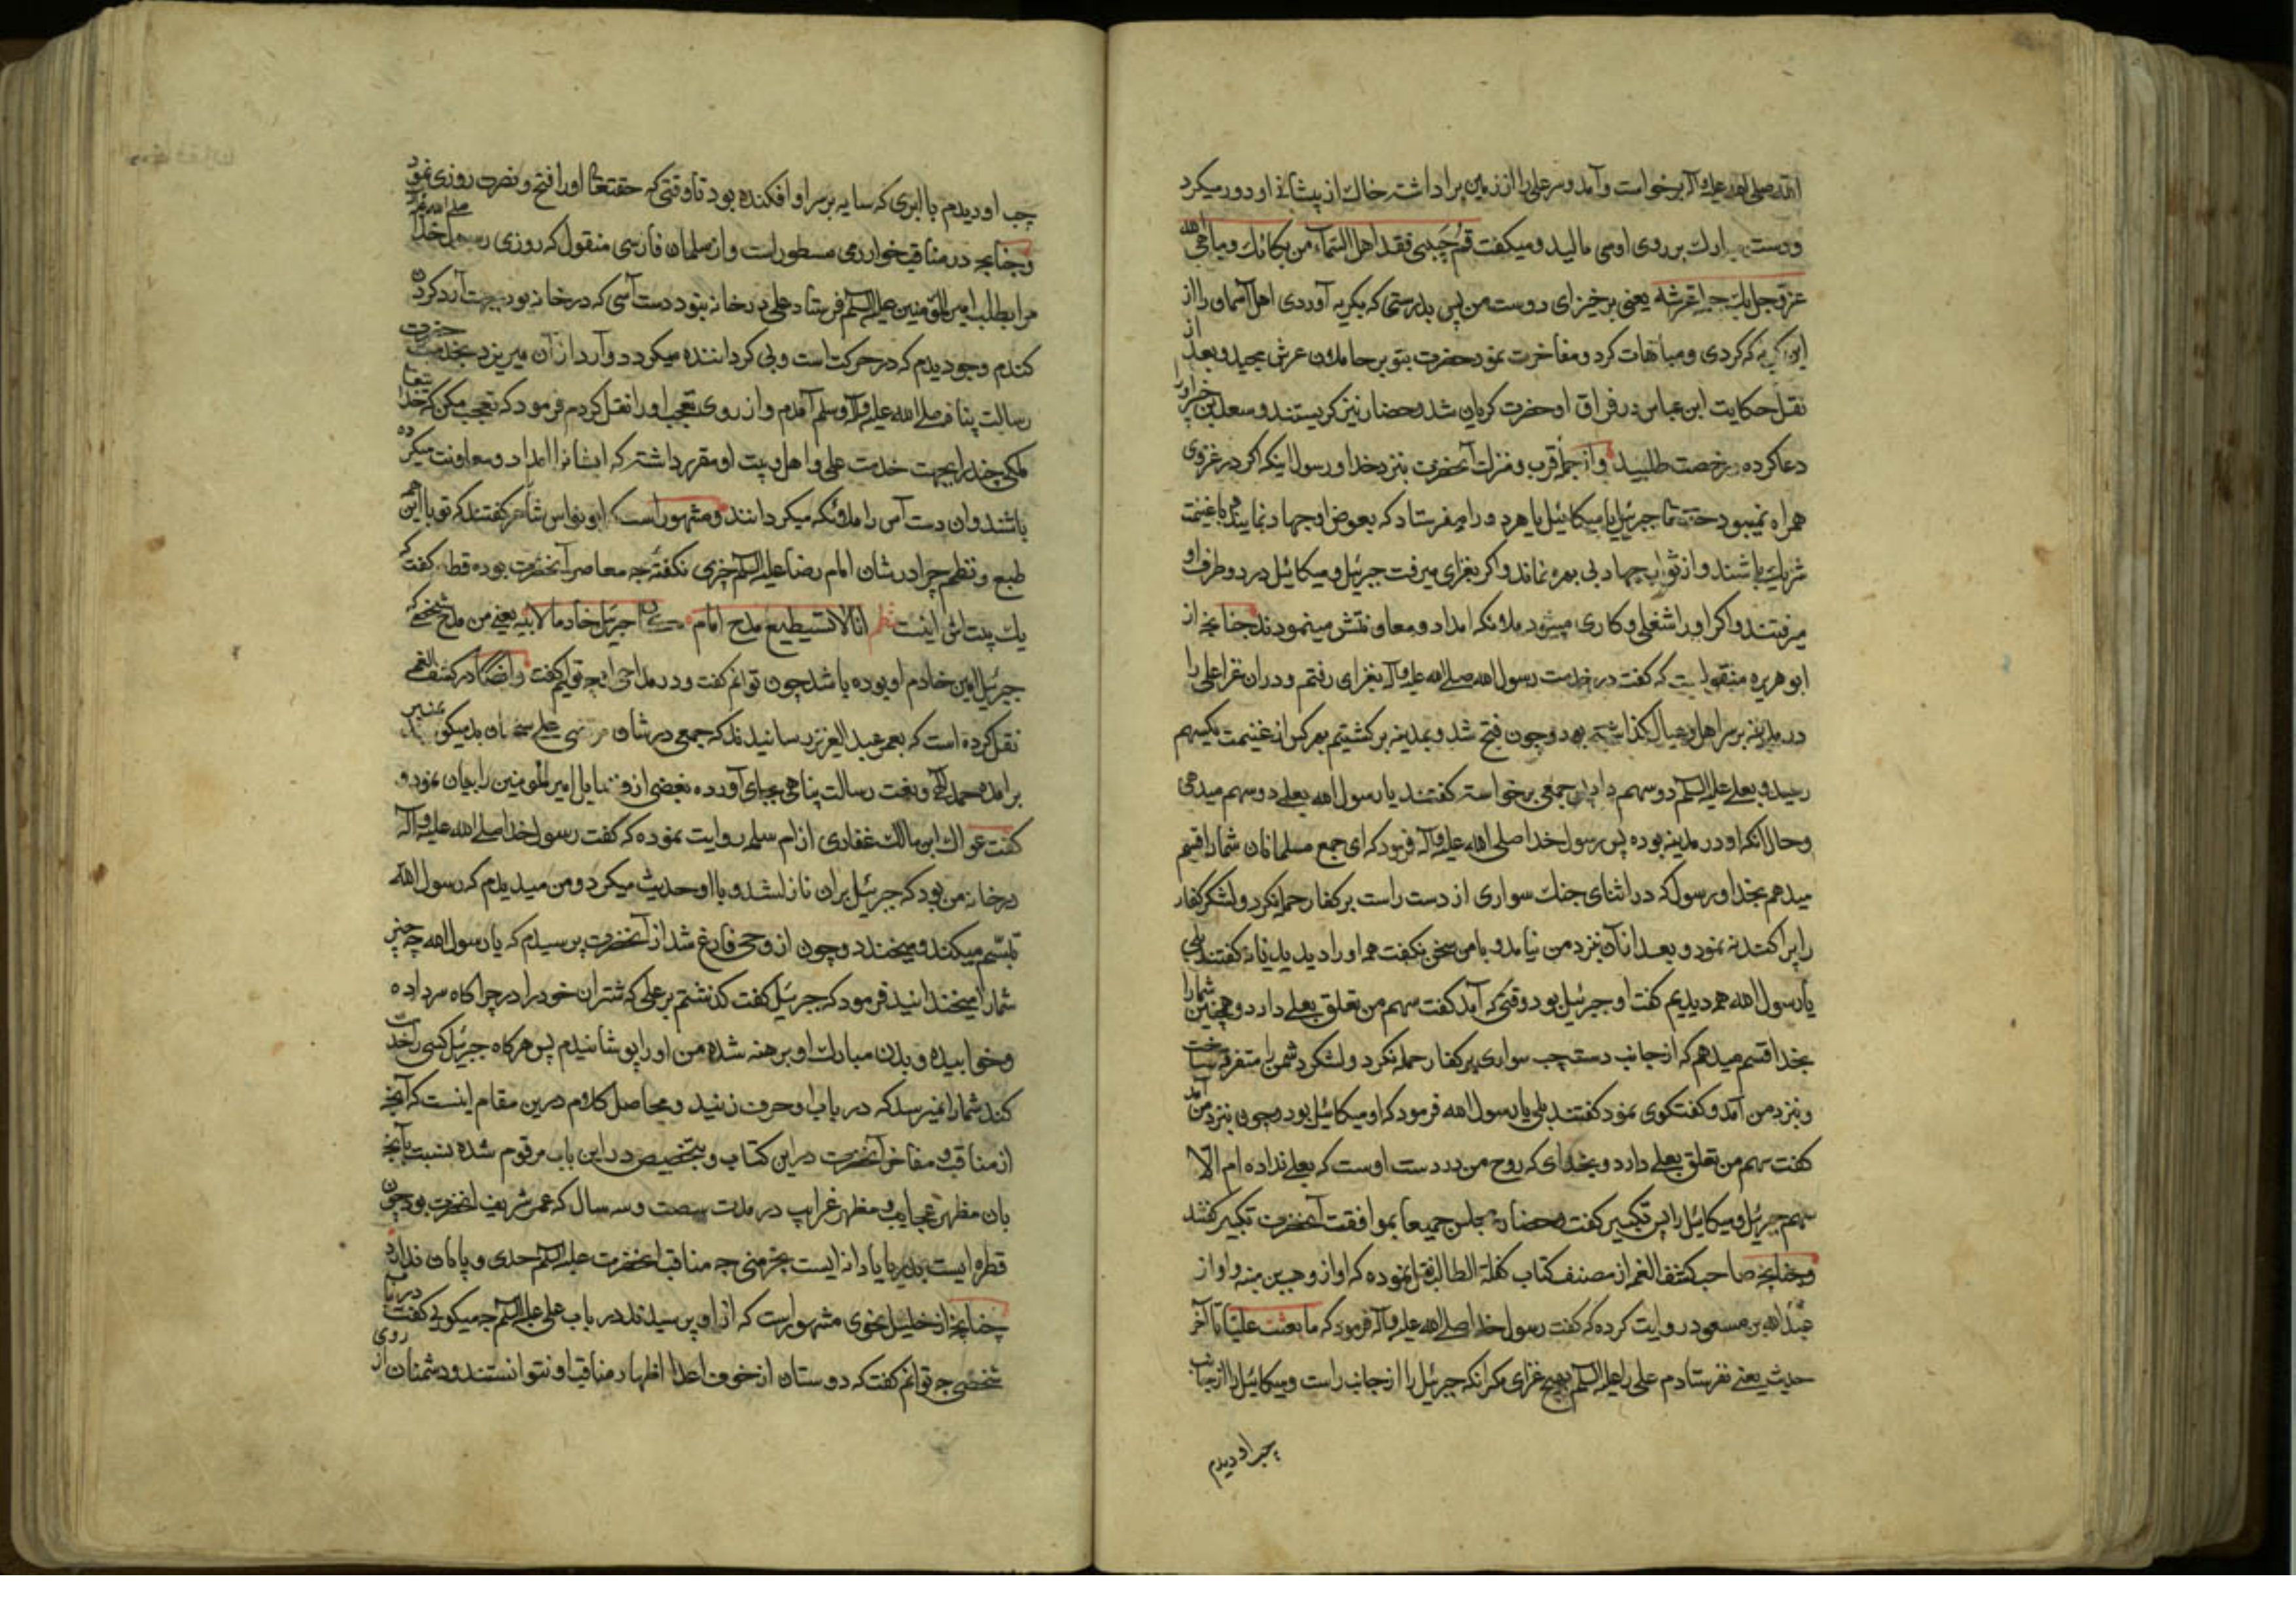 الله صلی الله علیه وآله برخواست و آمد و سر علی را از زمین برداشته خاك از پیشانی او دور میکرد
و دست مبارك بر روی او می مالید و میکفت قم حبیبی فقد اهل السماء من بکائك و یباهی الله
عز و جل بك حملة عرشه یعنی برخیز ای دوست من پس بدرستی که بکریه آوردی اهل آسمان را از
این کریه که کردی و مباهات کرد و مفاخرت نمود حضرت بتو بر حاملان عرش مجید و بعد از
نقل حکایت ابن عباس در فراق او حضرت کریان شد و حضار نیز کریستند و سعد بن خیر او را
دعا کرده رخصت طلبید و از جمله قرب و منزلت آنحضرت بنزد خدا و رسول اینکه اکر در غزوی
همراه نمیبود حقتعا جبرئیل یا میکائیل یا هر دو را میفرستاد که بعوض او جهاد نمایند و با غنیمت
شریك باشند و از ثواب جهاد بی بهره نماند و اکر بغزای میرفت جبرئیل و میکائیل در دو طرف او
میرفتند و اکر او را شغلی و کاری میشود ملائکه امداد و معاونتش مینمودند چنانچه از
ابو هریره منقولست که کفت در خدمت رسول الله صلی الله علیه وآله بغزای رفتم و در ان غزا علی را
در مدینه بر سر اهل و عیال کذاشته بود و چون فتح شد و بمدینه برکشتیم بهر کس از غنیمت یکسهم
رسید و بعلی علیه السلم دو سهم داد پس جمعی برخواسته کفتند یا رسول الله بعلی دو سهم میدهی
و حال انکه او در مدینه بوده پس رسول خدا صلی الله علیه وآله فرمود که ای جمع مسلمانان شما را قسم
میدهم بخدا و رسول که در اثنای جنك سواری از دست راست بر کفار حمله نکرد و لشکر کفار
را پراکنده نمود و بعد از آن بنزد من نیامد و با من سخن نکفت همه او را دیدید یا نه کفتند بلی
یا رسول الله همه دیدیم کفت او جبرئیل بود وقتی که آمد کفت سهم من تعلق بعلی دارد و همچنین شما را
بخدا قسم میدهم که از جانب دست چپ سواری بر کفار حمله نکرد و لشکر دشمن را متفرق ساخت
و بنزد من آمد و کفتکوی نمود کفتند بلی یا رسول الله فرمود که او میکائیل بود و چون بنزد من آمد
کفت سهم من تعلق بعلی دارد و بخدای که روح من در دست اوست که بعلی نداده ام الا
سهم جبرئیل و میکائیل را پس تکبیر کفت و حضار مجلس جمیعا بموافقت آنحضرت تکبیر کفتند
و چنانچه صاحب کشف الغمه از مصنف کتاب کفایة الطالب نقل نموده که او از وهب بن منبه و او از
عبد الله بن مسعود روایت کرده که کفت رسول خدا صلی الله علیه وآله فرمود که ما بعثت علیا تا آخر
حدیث یعنی نفرستادم علی را علیه السلم بهیچ غزای مکر انکه جبرئیل را از جانب راست و میکائیل را از جانب
چپ او دیدم
چپ او دیدم با ابری که سایه بر سر او افکنده بود تا وقتی که حقتعا او را فتح و نصرت روزی نمود
و چنانچه در مناقب خوارزمی مسطور است و از سلمان فارسی منقول که روزی رسول خدا صلی الله علیه وآله
مرا بطلب امیر المؤمنین علیه السلم فرستاد علی در خانه نبود دست آسی که در خانه بود بجهت آرد کردن
کندم و جو دیدم که در حرکت است و بی کرداننده میکردد و آرد از آن میریزد بخدمت حضرت
رسالت پناه صلی الله علیه وآله وسلم آمدم و از روی تعجب او را نقل کردم فرمود که تعجب مکن که خدا یتعا
ملکی چند را بجهت خدمت علی و اهل بیت او مقرر داشته که ایشانرا امداد و معاونت میکرده
باشند و ان دست آس را ملائکه میکردانند و مشهور است که ابو نواس شاعر کفتند که تو با این همه
طبع و نظم چرا در شان امام رضا علیه السلم چیزی نکفتۀ چه معاصر آنحضرت بوده قطعه کفت که
یك بیت اش اینست نظم انا لا استطیع مدح امام کان جبریل خادما لابیه یعنی من مدح شخصی که
جبرئیل امین خادم او بوده باشد چون توانم کفت و در مداحی او چه توانیم کفت و ایضا در کشف الغمه
نقل کرده است که بعمر عبد العزیز رسانیدند که جمعی در شان مرتضی علی سخنان بد میکویند بمنبر
برامده حمد الهی و نعت رسالت پناهی بجای آورده بعضی از فضایل امیر المؤمنین را بیان نمود و
کفت عراك ابن مالك غفاری از ام سلمه روایت نموده که کفت رسول خدا صلی الله علیه وآله
در خانه من بود که جبرئیل بر ان نازل شد و با او حدیث میکرد و من میدیدم که رسول الله
تبسم میکند و میخندد و چون از وحی فارغ شد از آنحضرت پرسیدم که یا رسول الله چه چیز
شما را میخندانید فرمود که جبرئیل کفت کذشتم بر علی که شتران خود را در چراکاه سر داده
و خوابیده و بدن مبارك او برهنه شده من او را پوشانیدم پس هر کاه جبرئیل کسی را خدمت
کند شما را نمیرسد که در باب او حرف زنید و محاصل کلام درین مقام اینست که آنچه
از مناقب و مفاخر آنحضرت در این کتاب و بتخصیص در این باب مرقوم شده نسبت بآنچه
بان مظهر عجایب و مظهر غرایب در مدت شصت و سه سال که عمر شریف آنحضرت بود چون
قطره ایست بدریا یا دانه ایست بخرمنی چه مناقب آنحضرت علیه السلم حدی و پایان ندارد
چنانچه از خلیل نحوی مشهور است که از او پرسیدند در باب علی علیه السلم چه میکویی کفت در باب
شخصی چه توانم کفت که دوستان از خوف اعدا اظهار مناقب او نتوانستند و دشمنان از روی